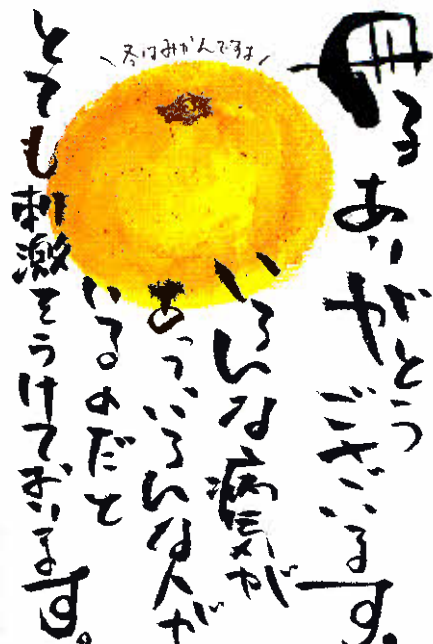 冬はみかんです
冊子ありがとうございます。
いろんな病気が
あっていろんな人が
いるのだと
とても刺激をうけております。